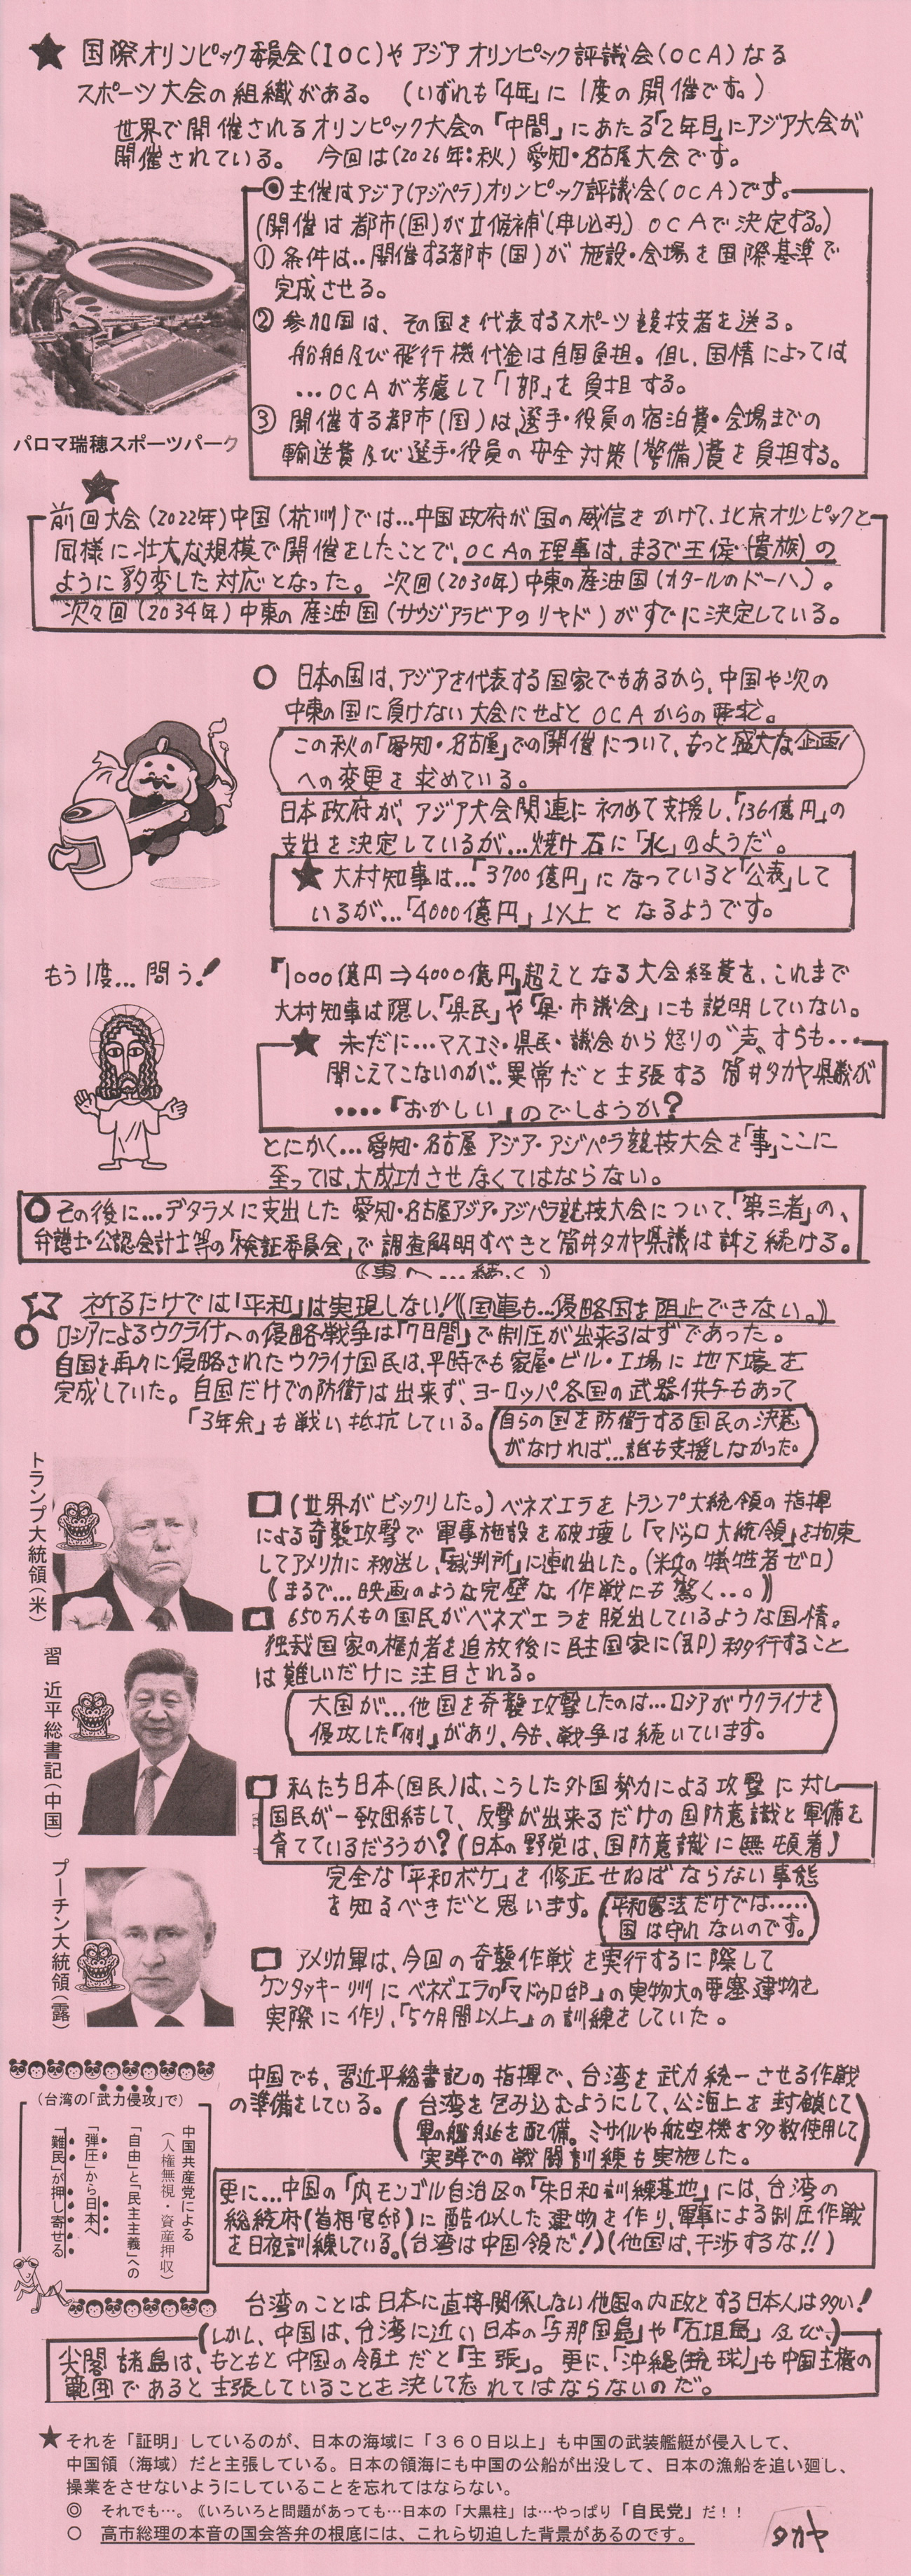 ★ 国際オリンピック委員会(IOC)やアジアオリンピック評議会(OCA)なる
スポーツ大会の組織がある。 (いずれも「4年」に1度の開催です。)
世界で開催されるオリンピック大会の「中間」にあたる「2年目」にアジア大会が
開催されている。 今回は(2026年:秋)愛知・名古屋大会です。
◎主催はアジア(アジペラ)オリンピック評議会(OCA)です。
(開催は都市(国)が立候補(申し込み)OCAで決定する。)
① 条件は‥開催する都市(国)が施設・会場を国際基準で
完成させる。
② 参加国は、その国を代表するスポーツ競技者を送る。
船舶及び飛行機代金は自国負担。但し、国情によっては
…OCAが考慮して「1部」を負担する。
③ 開催する都市(国)は、選手・役員の宿泊費・会場までの
輸送費及び選手・役員の安全対策(警備)費を負担する。
パロマ瑞穂スポーツパーク
★
前回大会(2022年)中国(杭州)では…中国政府が国の威信をかけて、北京オリンピックと
同様に壮大な規模で開催をしたことで、OCAの理事は、まるで王侯(貴族)の
ように豹変した対応となった。 次回(2030年)中東の産油国(カタールのドーハ)。
次々回(2034年)中東の産油国(サウジアラビアのリヤド)がすでに決定している。
○ 日本の国は、アジアを代表する国家でもあるから、中国や次の
中東の国に負けない大会にせよとOCAからの要求。
この秋の「愛知・名古屋」での開催について、もっと盛大な企画
への変更を求めている。
日本政府が、アジア大会関連に初めて支援し、「136億円」の
支出を決定しているが…焼け石に「水」のようだ。
★ 大村知事は…「3700億円」になっていると「公表」して
いるが…「4000億円」以上となるようです。
もう1度…問う!
「1000億円⇒4000億円」超えとなる大会経費を、これまで
大村知事は隠し、「県民」や「県・市議会」にも説明していない。
★ 未だに…マスコミ・県民・議会から怒りの〝声〟すらも…
聞こえてこないのが‥異常だと主張する筒井タカヤ県議が
‥‥「おかしい」のでしょうか?
とにかく…愛知・名古屋アジア・アジパラ競技大会を「事」ここに
至っては、大成功させなくてはならない。
○その後に…デタラメに支出した愛知・名古屋アジア・アジパラ競技大会について、「第三者」の、
弁護士・公認会計士等の「検証委員会」で調査解明すべきと筒井タカヤ県議は訴え続ける。
《裏へ…続く》
☆ 祈るだけでは「平和」は実現しない!《国連も…侵略国を阻止できない。》
○ ロシアによるウクライナへの侵略戦争は「7日間」で制圧が出来るはずであった。
自国を再々に侵略されたウクライナ国民は、平時でも家屋・ビル・工場に地下壕を
完成していた。自国だけでの防衛は出来ず、ヨーロッパ各国の武器供与もあって
「3年余」も戦い抵抗している。
自らの国を防衛する国民の決意
がなければ…誰も支援しなかった。
トランプ大統領(米)
□ (世界がビックリした。)ベネズエラをトランプ大統領の指揮
による奇襲攻撃で軍事施設を破壊し「マドゥロ大統領」を拘束
してアメリカに移送し、「裁判所」に連れ出した。(米兵の犠牲者ゼロ)
《まるで…映画のような完璧な作戦にも驚く…。》
□ 650万人もの国民がベネズエラを脱出しているような国情。
独裁国家の権力者を追放後に民主国家に(即)移行すること
は難しいだけに注目される。
大国が…他国を奇襲攻撃したのは…ロシアがウクライナを
侵攻した「例」があり、今も、戦争は続いています。
習 近平総書記(中国)
□ 私たち日本(国民)は、こうした外国勢力による攻撃に対し
国民が一致団結して、反撃が出来るだけの国防意識と軍備を
育てているだろうか?(日本の野党は、国防意識に無頓着)
完全な「平和ボケ」を修正せねばならない事態
を知るべきだと思います。
平和憲法だけでは……
国は守れないのです。
プーチン大統領(露)
□ アメリカ軍は、今回の奇襲作戦を実行するに際して
ケンタッキー州にベネズエラの「マドゥロ邸」の実物大の要塞建物を
実際に作り、「5ヶ月間以上」の訓練をしていた。
中国でも、習近平総書記の指揮で、台湾を武力統一させる作戦
の準備をしている。
(台湾を包み込むようにして、公海上を封鎖して
軍の艦艇を配備。ミサイルや航空機を多数使用して
実弾での戦闘訓練も実施した。)
(台湾の「武力侵攻」で)
中国共産党による
(人権無視・資産押収)
「自由」と「民主主義」への
「弾圧」から日本へ
「難民」が押し寄せる
更に…中国の「内モンゴル自治区の「朱日和訓練基地」には、台湾の
総統府(首相官邸)に酷似した建物を作り、軍事による制圧作戦
を日夜訓練している。(台湾は中国領だ!)(他国は、干渉するな!!)
台湾のことは日本に直接関係しない他国の内政とする日本人は多い!
(しかし、中国は、台湾に近い日本の「与那国島」や「石垣島」及び、)
尖閣諸島は、もともと中国の領土だと「主張」。更に、「沖縄(琉球)」も中国主権の
範囲であると主張していることを決して忘れてはならないのだ。
★それを「証明」しているのが、日本の海域に「360日以上」も中国の武装艦艇が侵入して、
中国領(海域)だと主張している。日本の領海にも中国の公船が出没して、日本の漁船を追い廻し、
操業をさせないようにしていることを忘れてはならない。
◎ それでも…。《いろいろと問題があっても…日本の「大黒柱」は…やっぱり「自民党」だ!!
○ 高市総理の本音の国会答弁の根底には、これら切迫した背景があるのです。
タカヤ